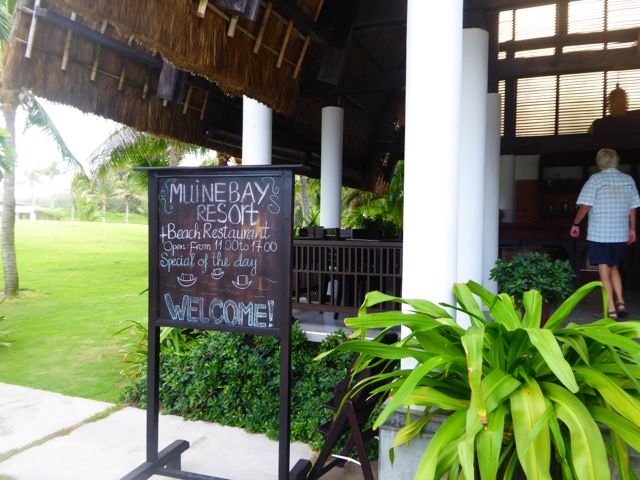 MUINE BAY
RESORT
+Beach Restaurant
Open: From 11:00 to 17:00
Special of the day
WELCOME!